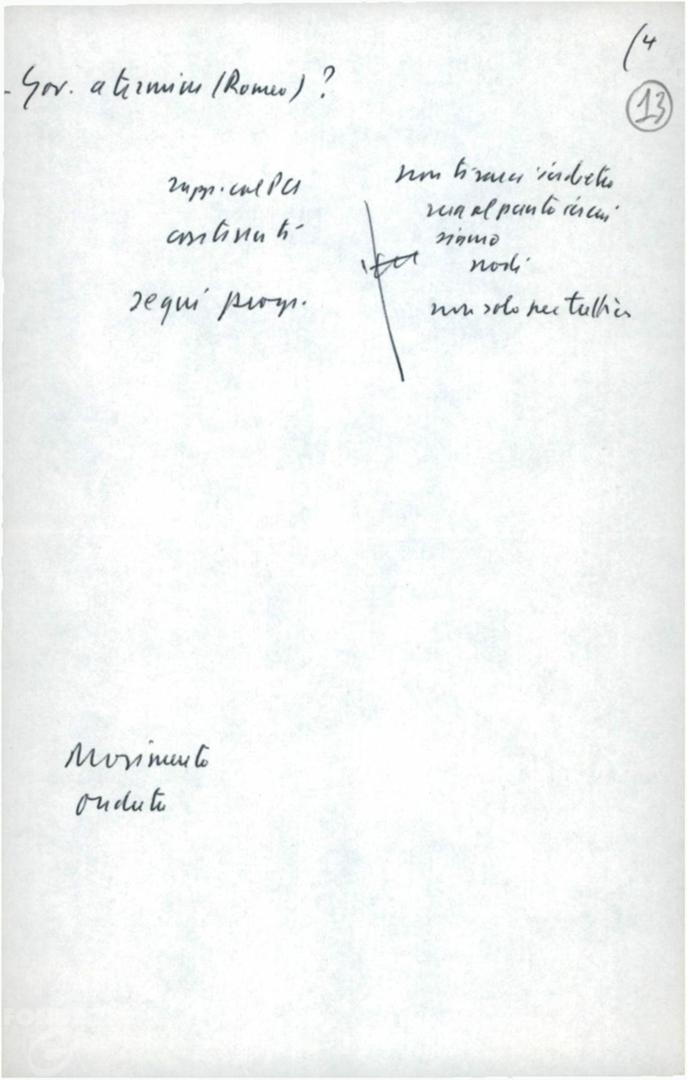 (4
13
- Gov. a termine (Romeo) ?
rapp. col PCI
continuità
segni progr.
non tirarci indietro
ma al punto in cui
siamo
nodi
non solo per
Movimento
ondate